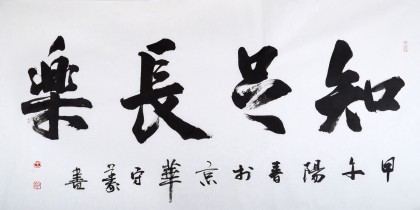 知足長樂
甲午陽春於京華守義書